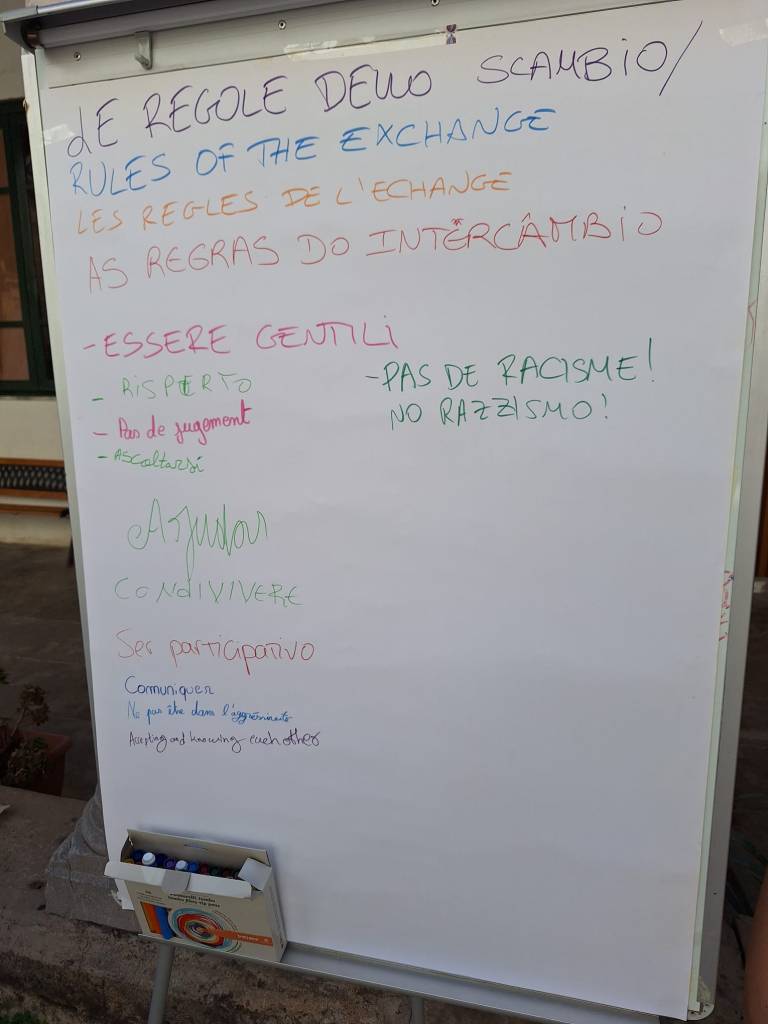 LE REGOLE DELLO SCAMBIO/
RULES OF THE EXCHANGE
LES REGLES DE L'ECHANGE
AS REGRAS DO INTERCÂMBIO
- ESSERE GENTILI
- RISPETTO
- Pas de jugement
- ASColtarsi
- PAS DE RACISME!
NO RAZZISMO!
Ajudar
CONDIVIVERE
Ser participativo
Comuniquer
Ne pas être dans
Accepting and knowing each other